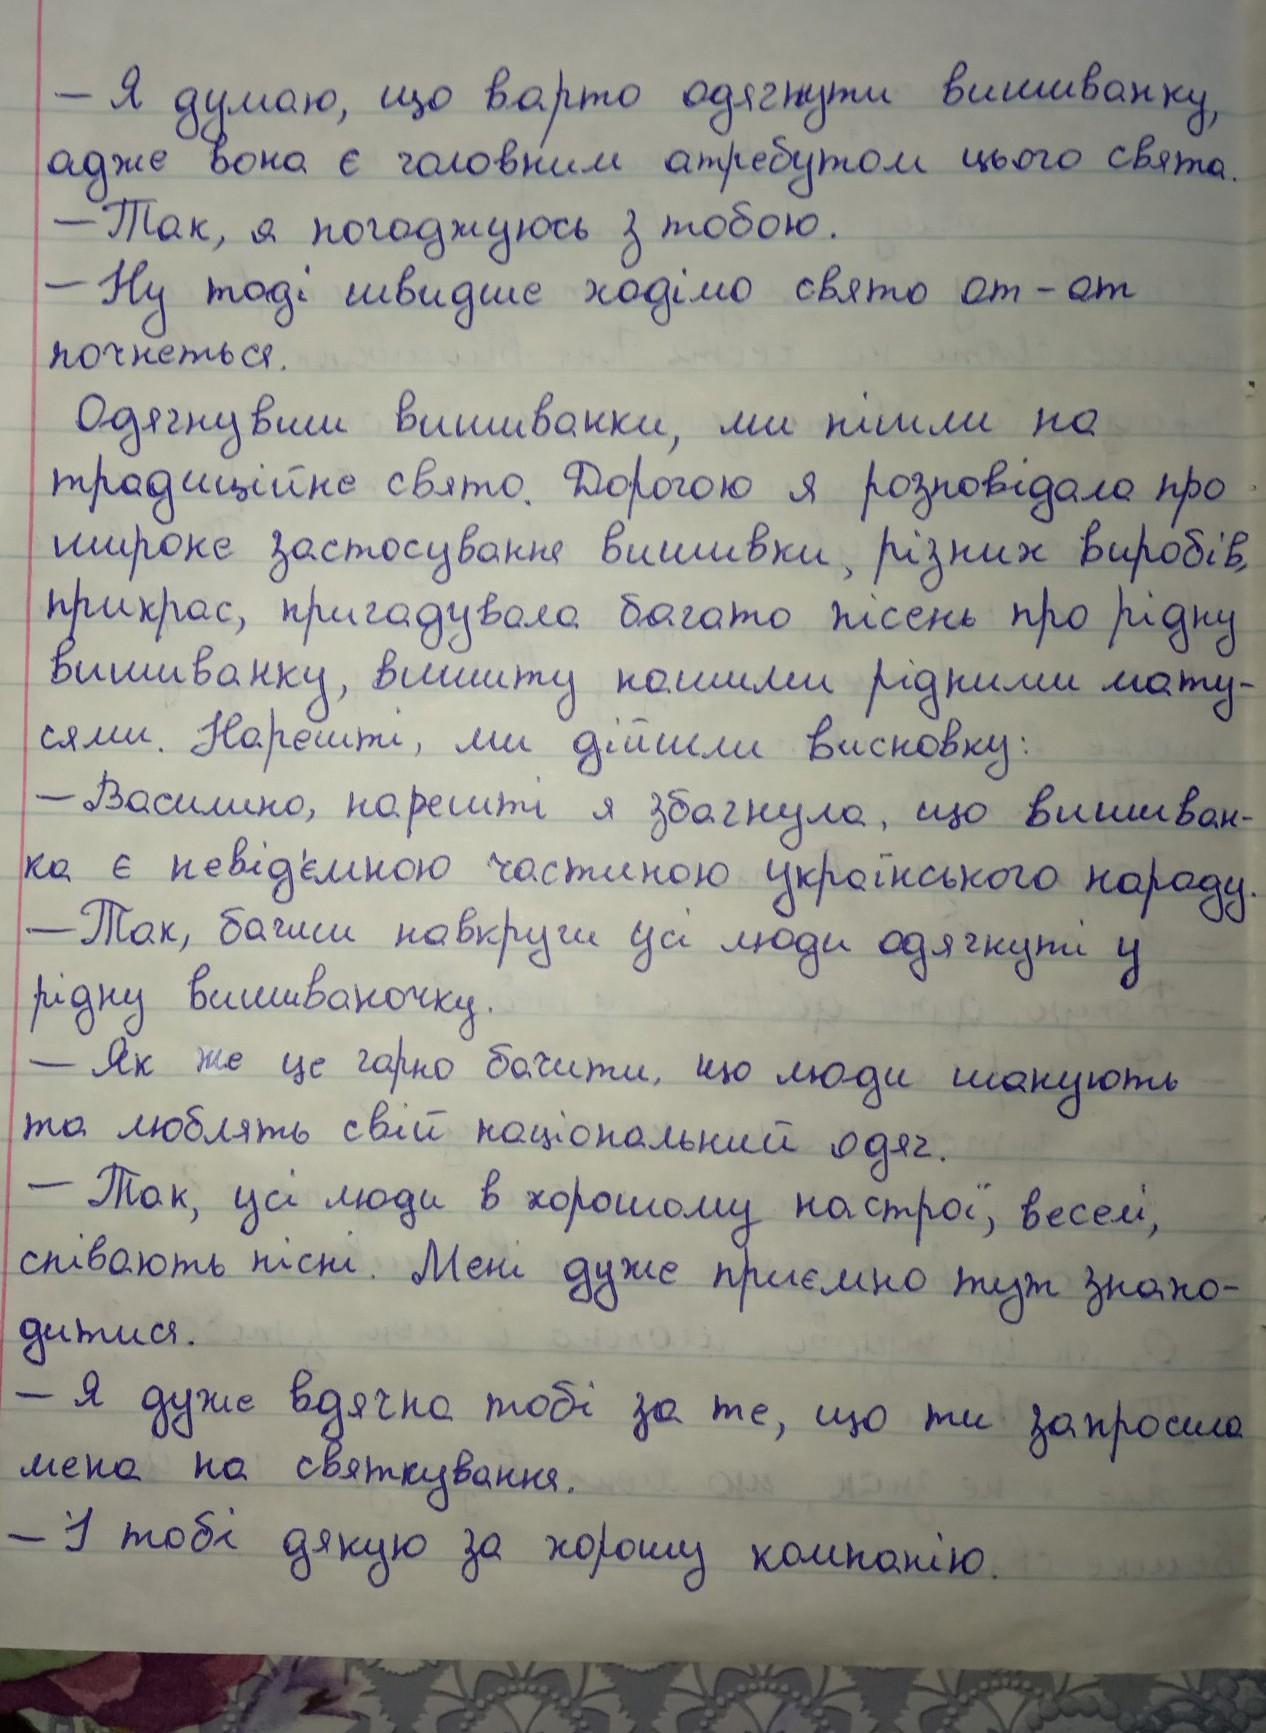 — Я думаю, що варто одягнути вишиванку,
адже вона є головним атребутом цього свята.
— Так, я погоджуюсь з тобою.
— Ну тоді швидше ходімо свято от-от
почнеться.
Одягнувши вишиванки, ми пішли на
традиційне свято. Дорогою я розповідала про
широке застосування вишивки, різних виробів,
прикрас, пригадувала багато пісень про рідну
вишиванку, вишиту нашими рідними мату-
сями. Нарешті, ми дійшли висновку:
— Василино, нарешті я збагнула, що вишиван-
ка є невід'ємною частиною українського народу.
— Так, бачиш навкруги усі люди одягнуті у
рідну вишиваночку.
— Як же це гарно бачити, що люди шанують
та люблять свій національний одяг.
— Так, усі люди в хорошому настрої, веселі,
співають пісні. Мені дуже приємно тут знахо-
дитися.
— Я дуже вдячна тобі за те, що ти запросила
мена на святкування.
— І тобі дякую за хорошу компанію.